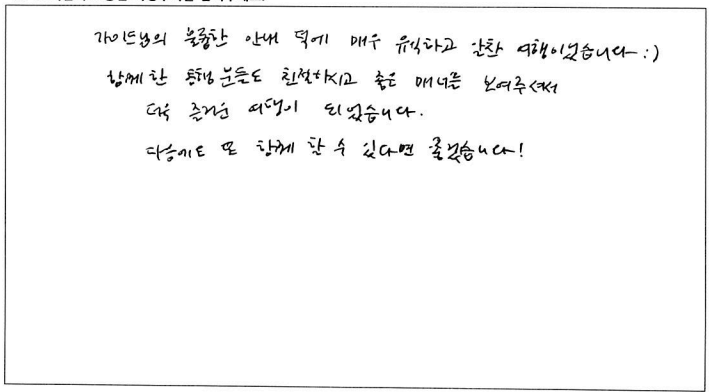 가이드님의 훌륭한 안내 덕에 매우 유익하고 알찬 여행이었습니다 :)
함께 한 동행분들도 친절하시고 좋은 매너를 보여주셔서
더욱 즐거운 여행이 되었습니다.
다음에도 또 함께 할 수 있다면 좋겠습니다!